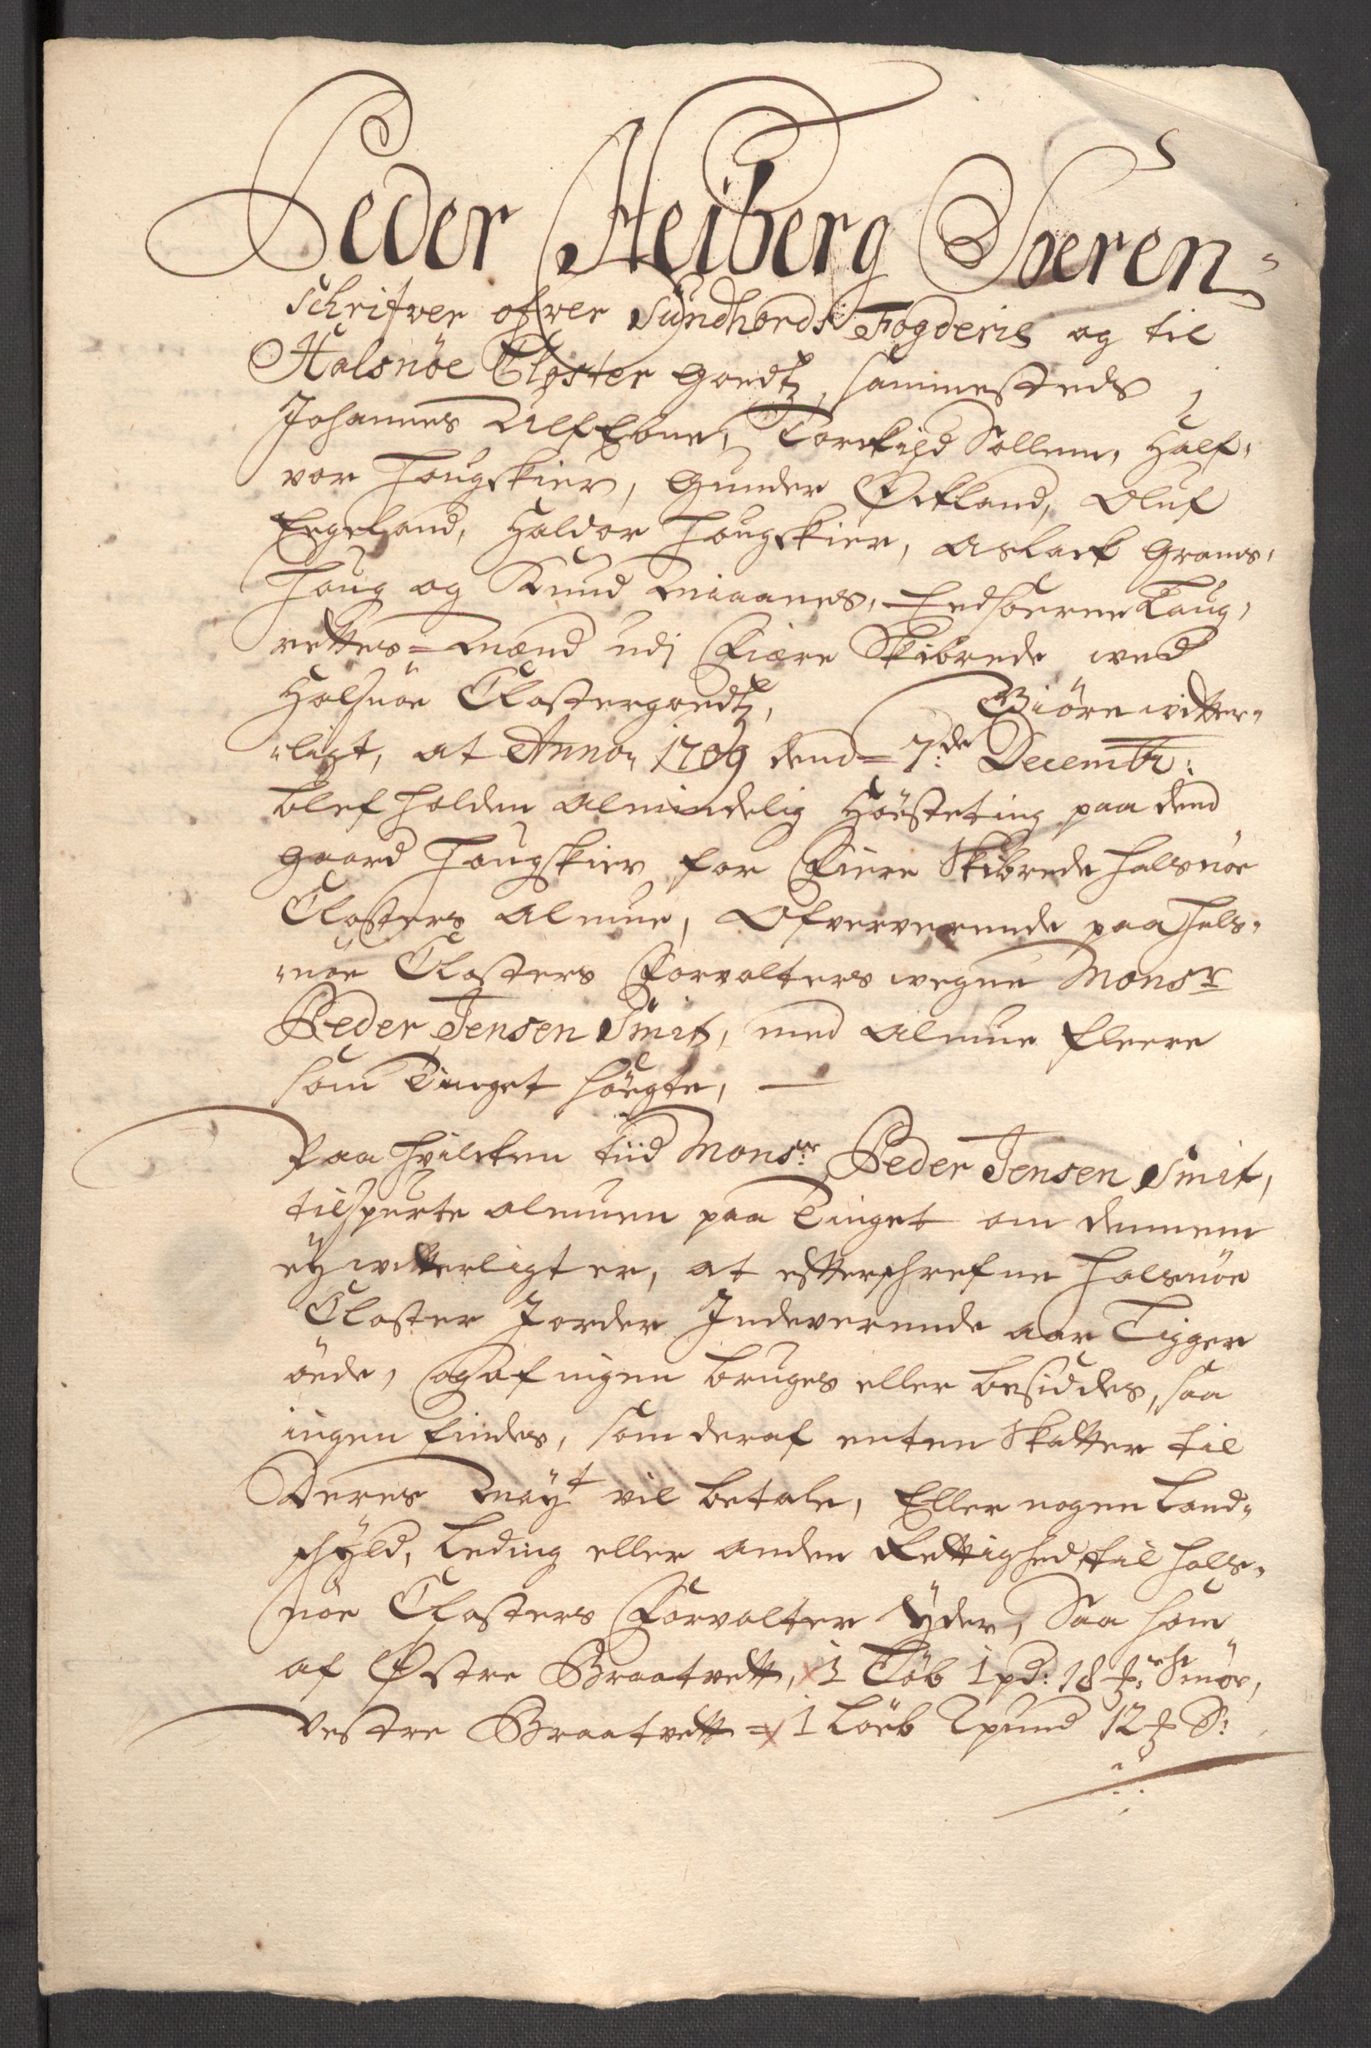 Peder Heiberg Soeren-
schrifver ofver Sundhords Fogderie og til
Halsnöe Closter Goedtz, sammesteds
Johannes Alf Ebne, Torckild Sollem, Half-
vor Hougskier, Gunder Øckland, Oluf
Eegeland, Haldor Hougskier, Aslack Grøns-
houg og Knud Miaanes, Eedsoerne Laug-
rettes-Mænd udj Fiære Skibrede wed
Halsnöe Closter goedtz, Giöre witter-
ligt, at Anno 1709 dend 7de Decembr:
blef holden almindelig Höysteting paa dend
gaard Hougskier for Fiære Skibrede Halsnöe
Closters Almue, Ofververende paa Hals-
nöe Closters Forvalters wegne Monsr
Peder Jensen Smit, med Almue fleere
som Tinget söegte,
Paa hvilcken tiid Monsr: Peder Jensen Smit,
tilspurte Almuen paa Tinget om dennem
ey witterligt er, at efterschrefne Halsnöe
Closter Jorder Indeverende aar Ligger
öede, og af ingen bruges eller besiddes, saa
ingen findes, som deraf enten Skatter til
Deres Mayt vil betale, Eller nogen Land-
schyld, Leding eller anden Rettighed til Hals-
nöe Closters Forvalter yder, Saa som
af Østre Braatvett, 1 Löb 1 pd: 18 # Smör,
Vestre Braatvett - 1 Löeb 2 pund 12 # S: